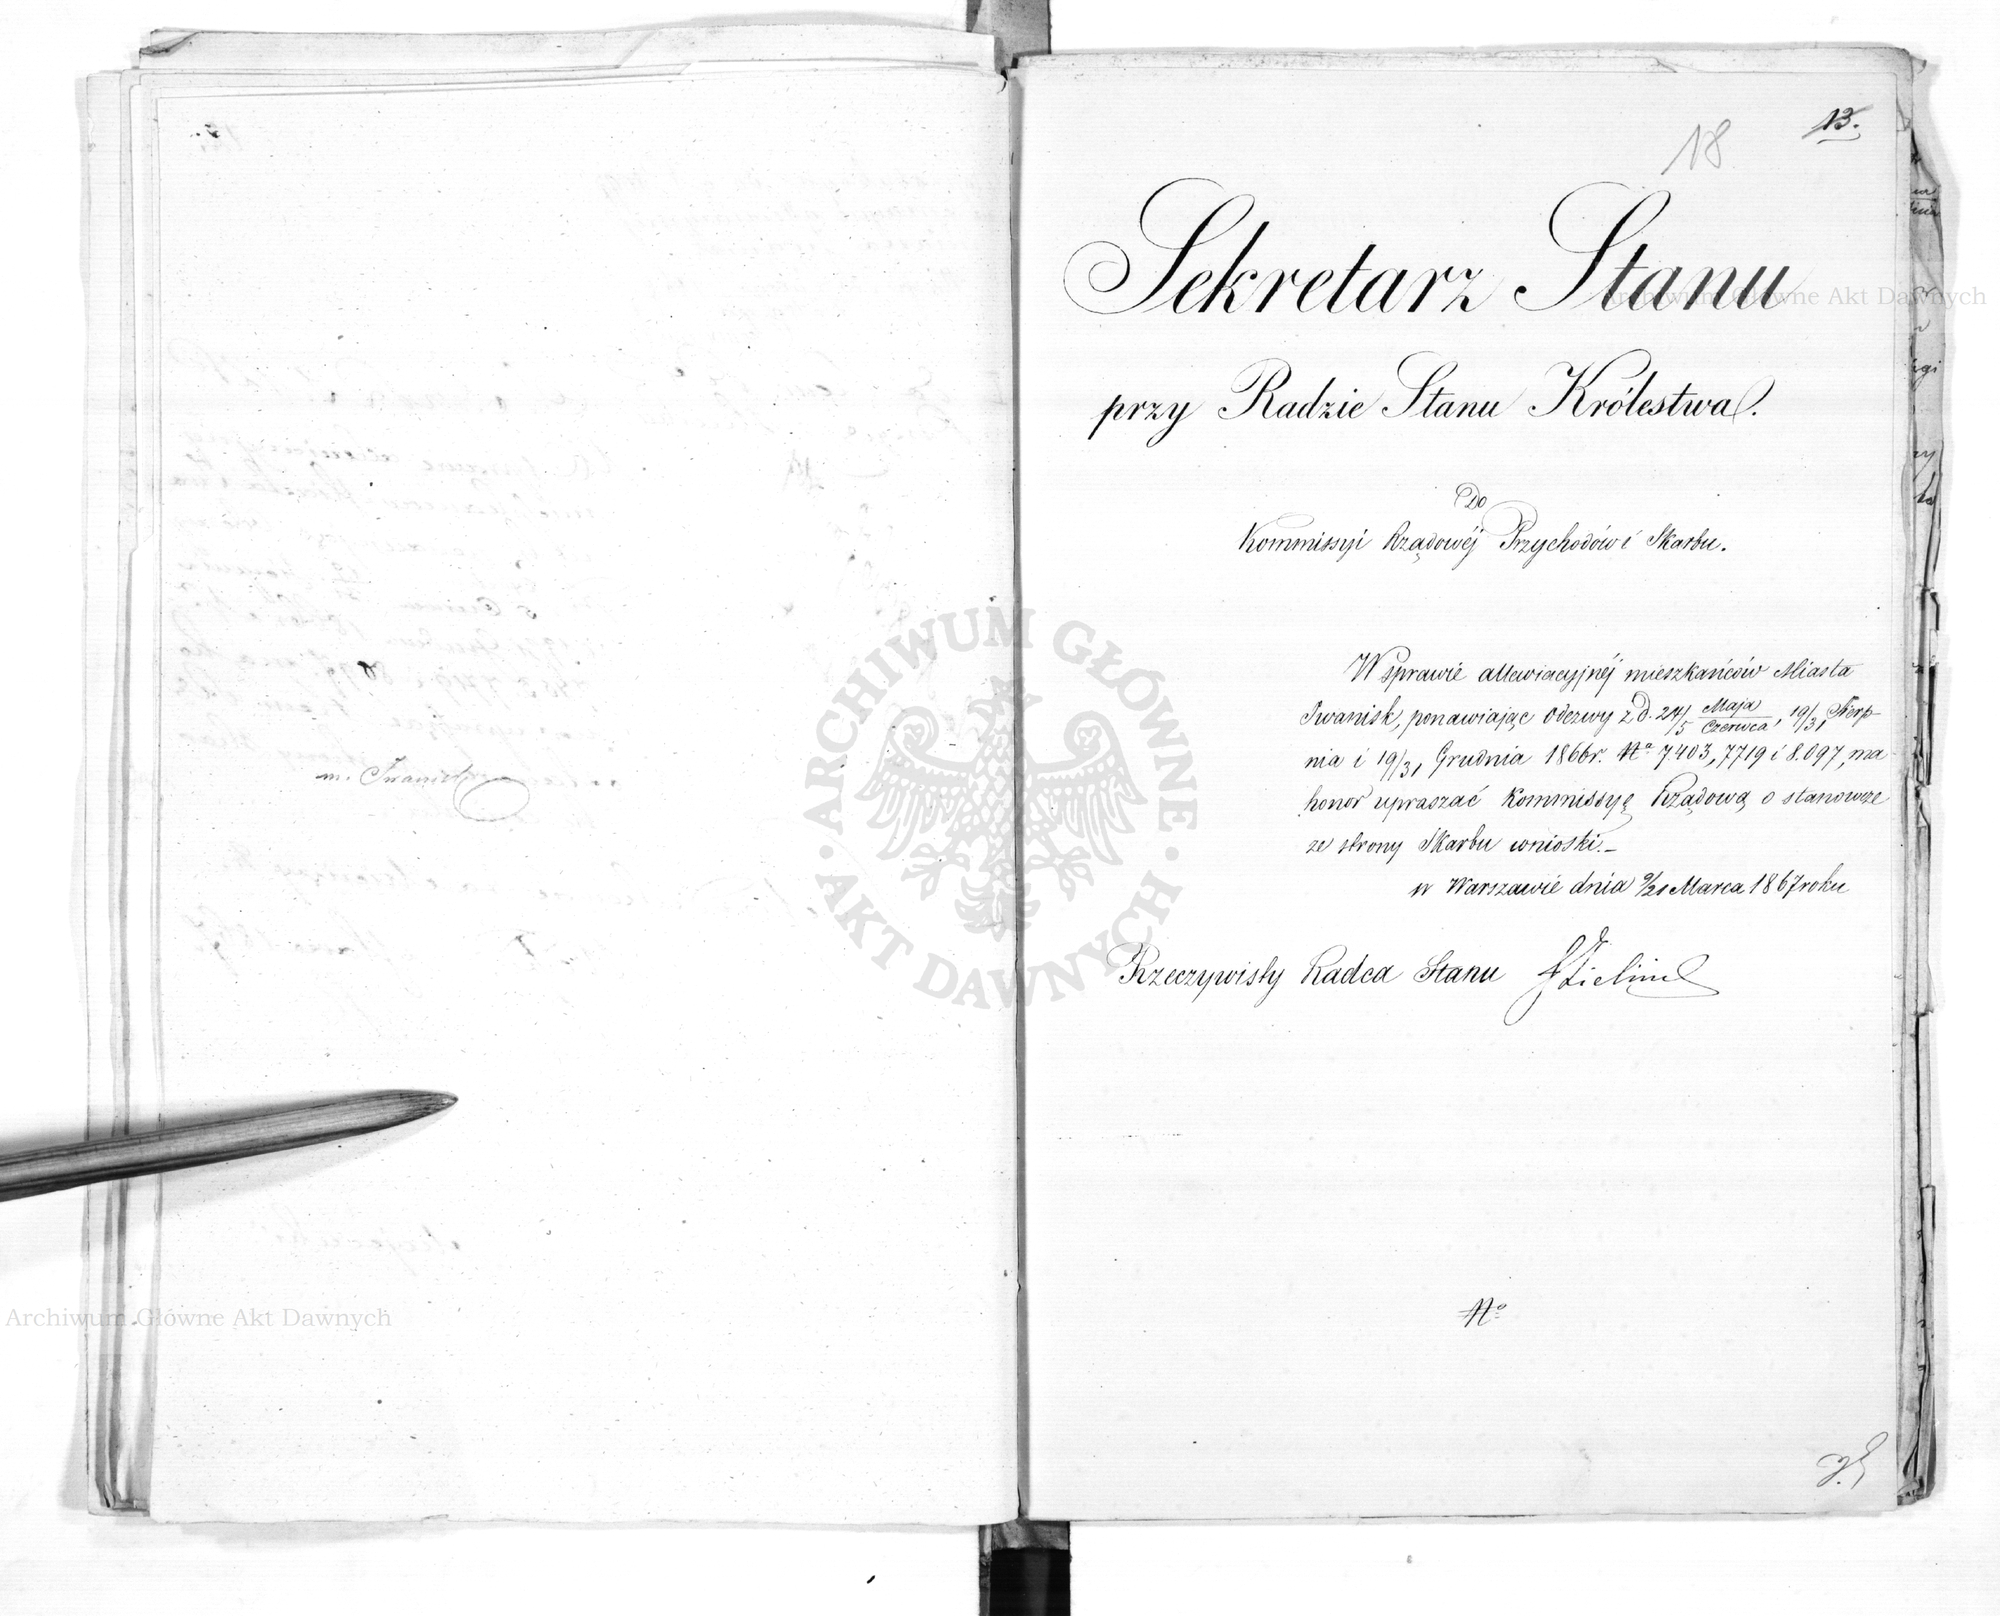 m. Iwaniska
13.
18
Sekretarz Stanu
przy Radzie Stanu Królestwa.
Do
Kommissyi Rządowéj Przychodów i Skarbu.
W sprawie allewiacyjnéj mieszkańców Miasta
Iwanisk, ponawiając Odezwy z d. 24/5 Maja/Czerwca, 19/31 Sierp-
nia i 19/31 Grudnia 1866 r. No 7403, 7719 i 8.097, ma
honor upraszać Kommissyę Rządową o stanowcze
ze strony Skarbu wnioski.–
w Warszawie dnia 9/21 Marca 1867 roku
Rzeczywisty Radca Stanu
No
Archiwum Główne Akt Dawnych
ARCHIWUM GŁÓWNE · AKT DAWNYCH ·
Archiwum Główne Akt Dawnych